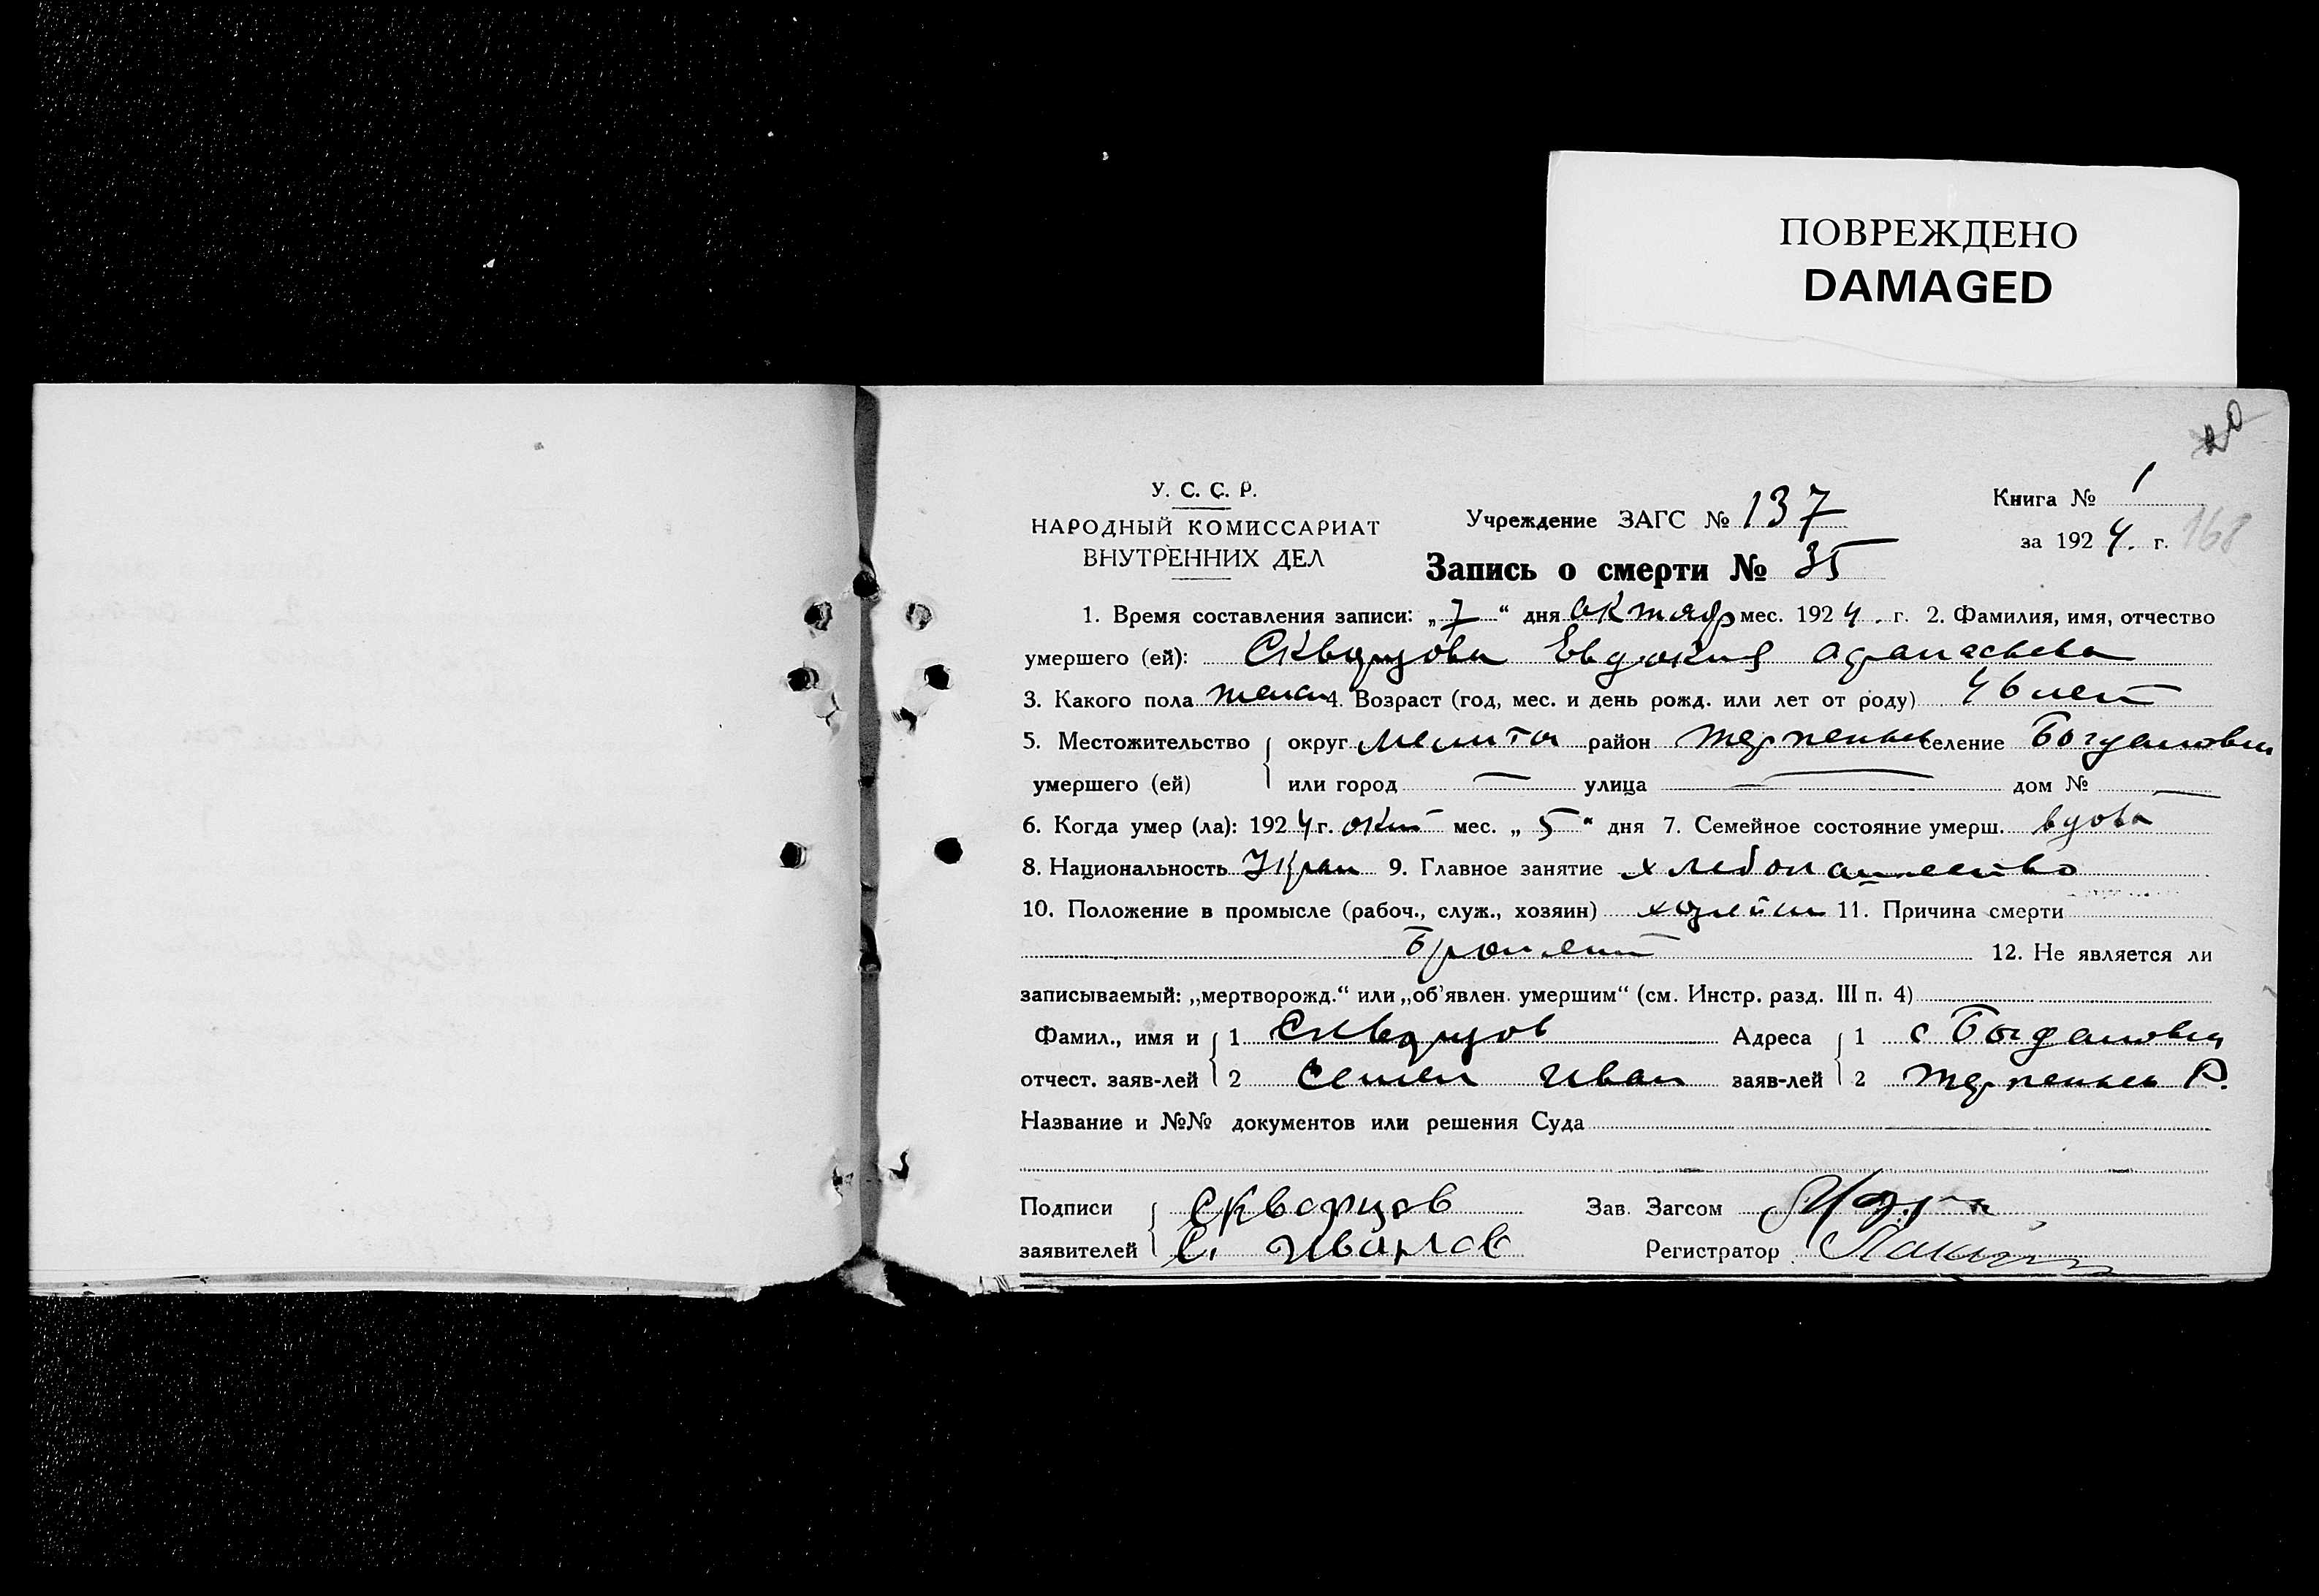 ПОВРЕЖДЕНО
DAMAGED
20
У. С. С. Р.
НАРОДНЫЙ КОМИССАРИАТ
ВНУТРЕННИХ ДЕЛ
Учреждение ЗАГС № 137
Книга № 1
за 1924. г.
168
Запись о смерти № 35
1. Время составления записи: „7“ дня октябр мес. 1924. г. 2. Фамилия, имя, отчество
умершего (ей): Скворцова Евдокия Афанасьева
3. Какого пола женск 4. Возраст (год, мес. и день рожд. или лет от роду) 46 лет
5. Местожительство округ Мелито район Терпеньев селение Богдановка
умершего (ей) или город — улица — дом № —
6. Когда умер (ла): 1924 г. окт мес. „5“ дня 7. Семейное состояние умерш. вдова
8. Национальность Украи 9. Главное занятие хлебопашество
10. Положение в промысле (рабоч., служ., хозяин) хозяин 11. Причина смерти
Бронхит 12. Не является ли
записываемый: „мертворожд.“ или „об'явлен. умершим“ (см. Инстр. разд. III п. 4)
Фамил., имя и 1 Скворцов Адреса 1 с Богдановка
отчест. заяв-лей 2 Семен Иван заяв-лей 2 Терпеньев Р.
Название и №№ документов или решения Суда
Подписи Скворцов Зав. Загсом
заявителей С. Иванов Регистратор